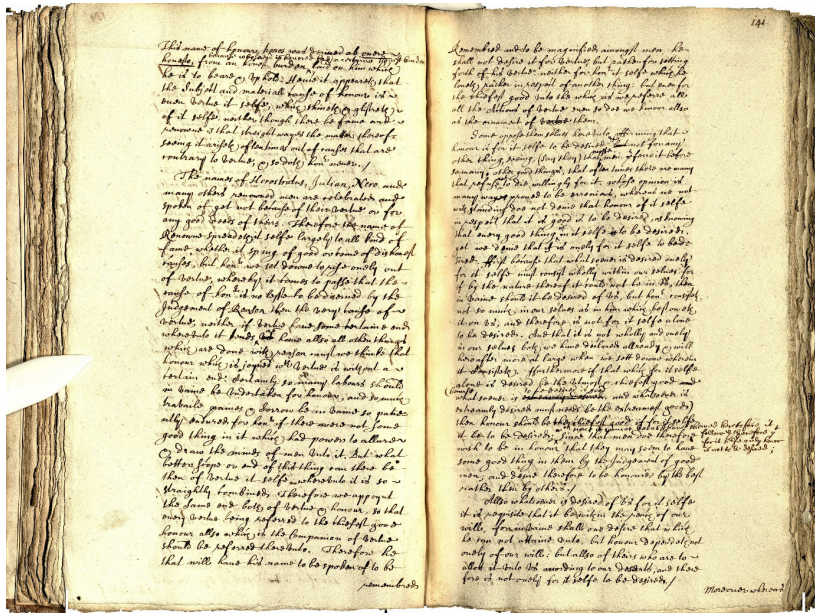 This name of honour, honos was deriued ab onere
honesto, from an honest burden laid on him which
because whosoever is honored hath a certaine
he is to beare & uphold. Hence it appeareth that
the subject and materiall cause of honour is
euen vertue it selfe, which shineth & glistreth
of it selfe, neither though there be fame and
renowne is that straight wayes the matter thereof
seeing it ariseth oftentimes out of causes that are
contrary to vertue, & so doth honr neuer. /
The names of Herostratus, Julian, Nero, and
many others renowned men are celebrated and
spoken of yet not because of their vertue or for
any good deeds of theirs. Therefore the name of
Renowne spreadeth it selfe largely to all kind of
fame whether it spring of good or some of dishonest
causes, but honr we set downe to rise onely out
of vertue, whereby it comes to passe that the
cause of honr is no lesse to be discerned by the
Judgement of Reason then the very cause of
vertue, neither if vertue haue some certaine end
whereunto it tends, as haue allso all other things
which are done with reason must we thinke that
honour which is joyned wth vertue is without a
certain end: Certainly so many labours should
in vaine be undertaken for honour, and so much
travaile games & sorrow be in vaine so patie
ntly endured for honr if there were not some
good thing in it which had power to allure
& draw the minds of men unto it. But what
better scope or end of that thing can there be
then of vertue it selfe whereunto it is so
straightly combined; Therefore we appoynt
the same end both of vertue & honour, so that
euery vertue being referred to the chiefest good
honour allso which is the companion of vertue
should be referred thereunto. Therefore he
that will haue his name to be spoken of to be
remembred
141
Remembred and to be magnified amongst men, he
shall not desire it for vertue, but rather for setting
forth of his vertue. neither for honr it selfe which he
loueth rather in respect of another thing: but euen for
the chiefest good unto the which as we referre all
all the actions of vertue euen so doe we honour allso
as the ornament of them.
Some oppose themselues hereunto affirming that
honour is for it selfe to be desired & not for any
other thing, seeing, (say they) that men preferre it before
so many other good things, that often times there are many
that refuse not to die willingly for it, whose opinion is
many wayes proued to be erroneous, wherein we not
withstanding doe not deny that honour of it selfe
in respect that it is good is to be desired, as knowing
that euery good thing in it selfe is to be desired,
yet we deny that it is onely for it selfe to be de
sired. First because that whatsoeuer is desired onely
for it selfe must consist wholly within our selues, for
if by the nature thereof it could not be in us, then
in vaine should it be desired of us, but honr consisteth
not so much in our selues as in him which bestoweth
it on us, and therefore is not for it selfe alone
to be desired. And that it is not wholly and onely
in our selues both we haue declared allready & will
hereafter more at large when we sett downe wherein
it consisteth. Furthermore if that which for it selfe
alone is desired be the utmost & chiefest good
what soeuer is and whatsoeuer is
extreamly desired must needs be the extreame good)
then honour should be the chiefest good if for it selfe
it be to be desired; Since that men doe therefore
wish to be in honour that they may seem to haue
some good thing in them by the Judgement of good
men, and desire therefore to be honoured by the best
rather then by others. /
Allso whatsoeuer is desired of us for it selfe
it is requisite that it be within the power of our
will, for in vaine shall one desire that which
he can not attaine unto, but honour dependeth not
onely of our will, but allso of theirs who are to
allow it unto us according to our deserts, and there
fore is not onely for it selfe to be desired /
Moreouer when